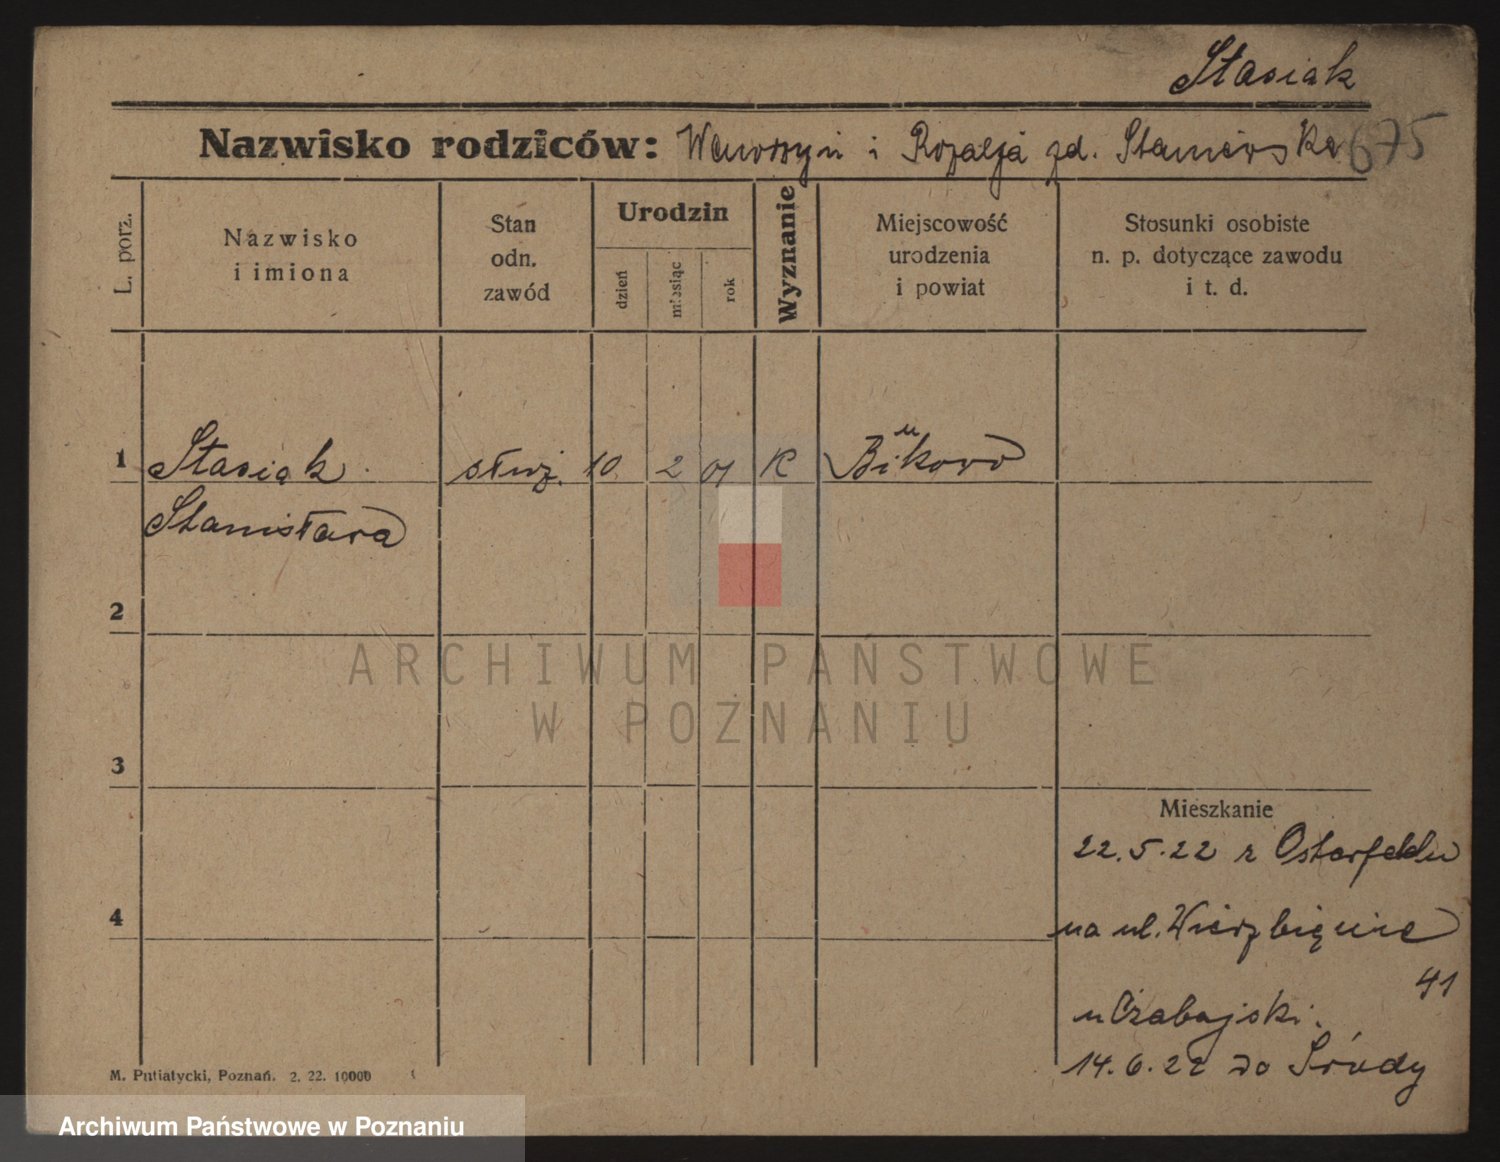 Stasiak
Nazwisko rodziców: Wawrzyn i Rozalja zd. Stanierska 675
L. porz.
Nazwisko
i imiona
Stan
odn.
zawód
Urodzin
dzień
miesiąc
rok
Wyznanie
Miejscowość
urodzenia
i powiat
Stosunki osobiste
n. p. dotyczące zawodu
i t. d.
1 Stasiak służ. 10 2 01 K
Stanisława
2
3
4
Mieszkanie
22.5.22 z Osterfeldu
na ul. Wierzbięcice
41
u Czabajski.
14.6.22 do Środy
M. Putiatycki, Poznań. 2. 22. 10000
ARCHIWUM PAŃSTWOWE
W POZNANIU
Archiwum Państwowe w Poznaniu